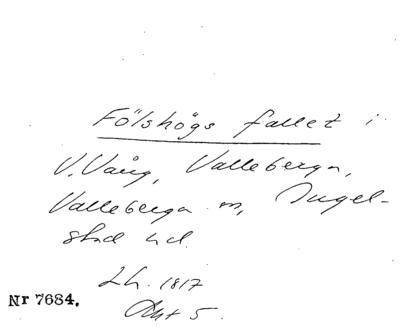 Fölshögs fallet i
V. Vång, Valleberga,
Valleberga sn, Ingel-
stad hd.
Lh. 1817
Akt 5.
Nr 7684.